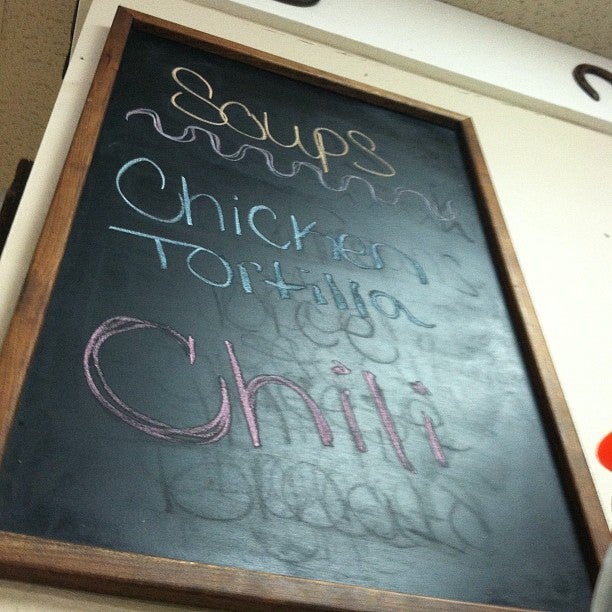 Soups
Chicken
Tortilla
Chili